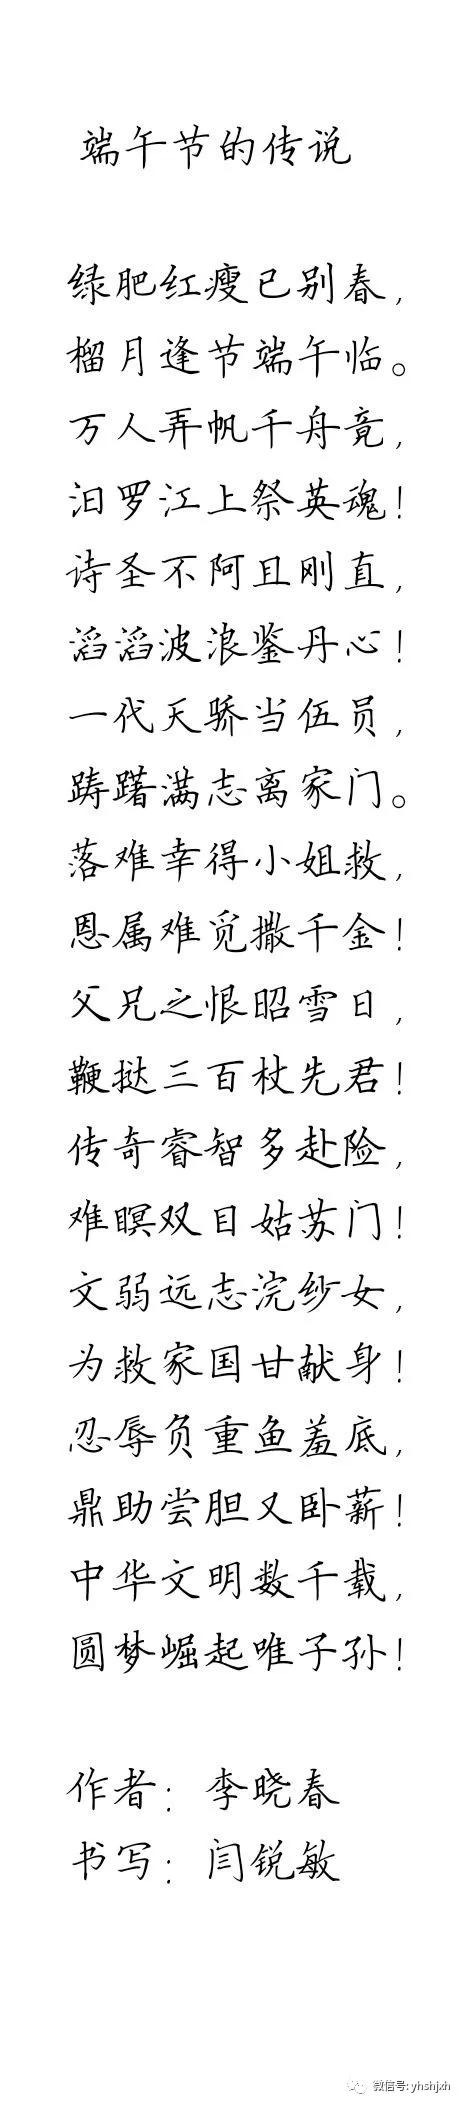 端午节的传说
绿肥红瘦已别春，
榴月逢节端午临。
万人弄帆千舟竟，
汨罗江上祭英魂！
诗圣不阿且刚直，
滔滔波浪鉴丹心！
一代天骄当伍员，
踌躇满志离家门。
落难幸得小姐救，
恩属难觅撒千金！
父兄之恨昭雪日，
鞭挞三百杖先君！
传奇睿智多赴险，
难瞑双目姑苏门！
文弱远志浣纱女，
为救家国甘献身！
忍辱负重鱼羞底，
鼎助尝胆又卧薪！
中华文明数千载，
圆梦崛起唯子孙！
作者：李晓春
书写：闫锐敏
微信号: yhshjxh